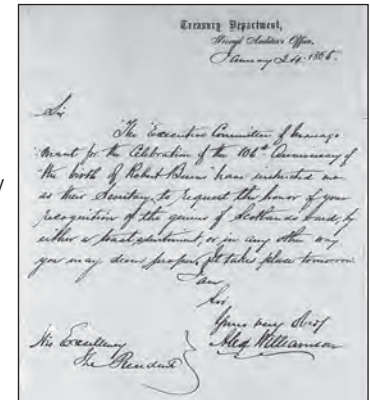 Treasury Department,
Third Auditor's Office,
January 24, 1865.
Sir
"The Executive Committee of Arrange
ment for the Celebration of the 106th Anniversary of
the birth of Robert Burns" have instructed me
as their Secretary, to request the honor of your
recognition of the genius of Scotland's bard, by
either a toast, sentiment, or in any other way
you may deem proper. It takes place tomorrow.
I am,
Sir,
Yours very Obdt
Alex Williamson
His Excellency
The President